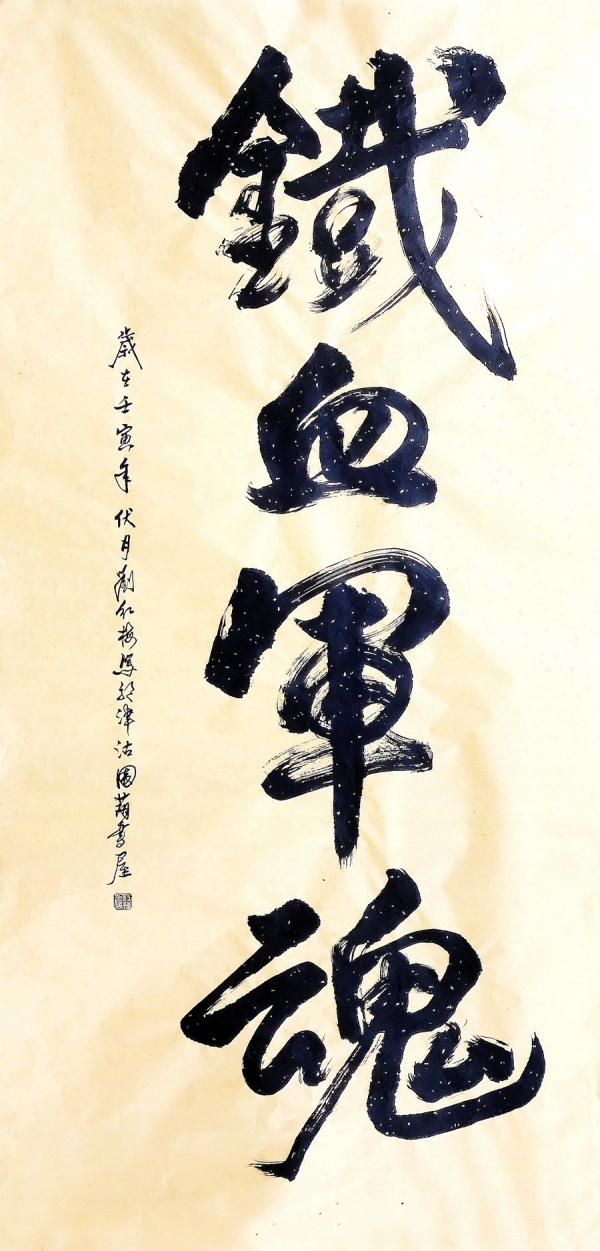 鐵血軍魂
歲在壬寅年伏月劉紅梅寫於津沽園葫書屋